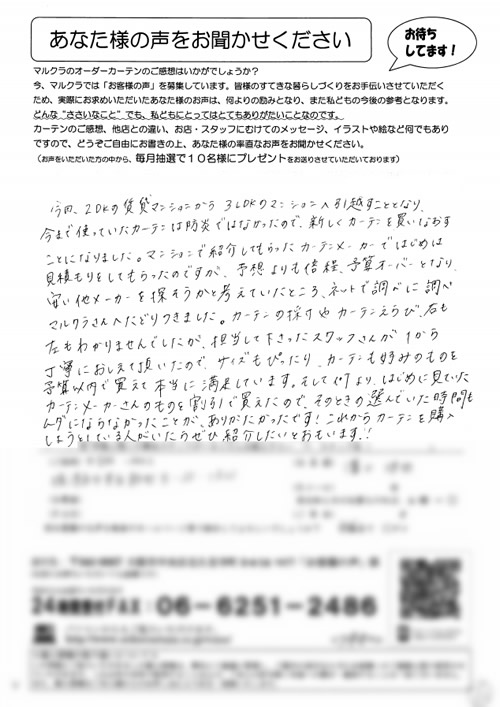 あなた様の声をお聞かせください
お待ち
してます！
マルクラのオーダーカーテンのご感想はいかがでしょうか？
今、マルクラでは「お客様の声」を募集しています。皆様のすてきな暮らしづくりをお手伝いさせていただく
ため、実際にお求めいただいたあなた様のお声は、何よりの励みとなり、また私どもの今後の参考となります。
どんな“ささいなこと”でも、私どもにとってはとてもありがたいことなのです。
カーテンのご感想、他店との違い、お店・スタッフにむけてのメッセージ、イラストや絵など何でもあり
ですので、どうぞご自由にお書きの上、あなた様の率直なお声をお聞かせください。
（お声をいただいた方の中から、毎月抽選で１０名様にプレゼントをお送りさせていただいております）
今回、2DKの賃貸マンションから 3LDKのマンションへ引越すこととなり、
今まで使っていたカーテンは防炎ではなかったので、新しくカーテンを買いなおす
ことになりました。マンションで紹介してもらったカーテンメーカーではじめは
見積もりをしてもらったのですが、予想よりも倍程、予算オーバーとなり、
安い他メーカーを探そうかと考えていたところ、ネットで調べに調べ
マルクラさんへたどりつきました。カーテンの採寸やカーテンえらび、右も
左もわかりませんでしたが、担当して下さったスタッフさんが1から
丁寧におしえて頂いたので、サイズもぴったり、カーテンも好みのものを
予算以内で買えて本当に満足しています。そして何より、はじめに見ていた
カーテンメーカーさんのものを割引で買えたので、そのときの選んでいた時間も
ムダにならなかったことが、ありがたかったです！これからカーテンを購入
しようとしている人がいたらぜひ紹介したいとおもいます！！
24時間受付FAX：06-6251-2486